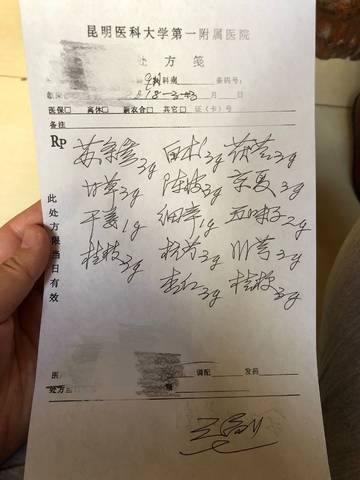 昆明医科大学第一附属医院
处方笺
科别 条码号:
月 日
医保□ 离休□ 新农合□ 其它□ 证(卡)号
备注
Rp
苏 3g 白术 3g 茯苓 3g
甘草 3g 陈皮 3g 京夏 3g
干姜 1g 细辛 1g 五味子 2g
桂枝 3g 杭芍 3g 川芎 3g
杏仁 3g 桔梗 3g
此处方限当日有效
医 调配 发药
处方